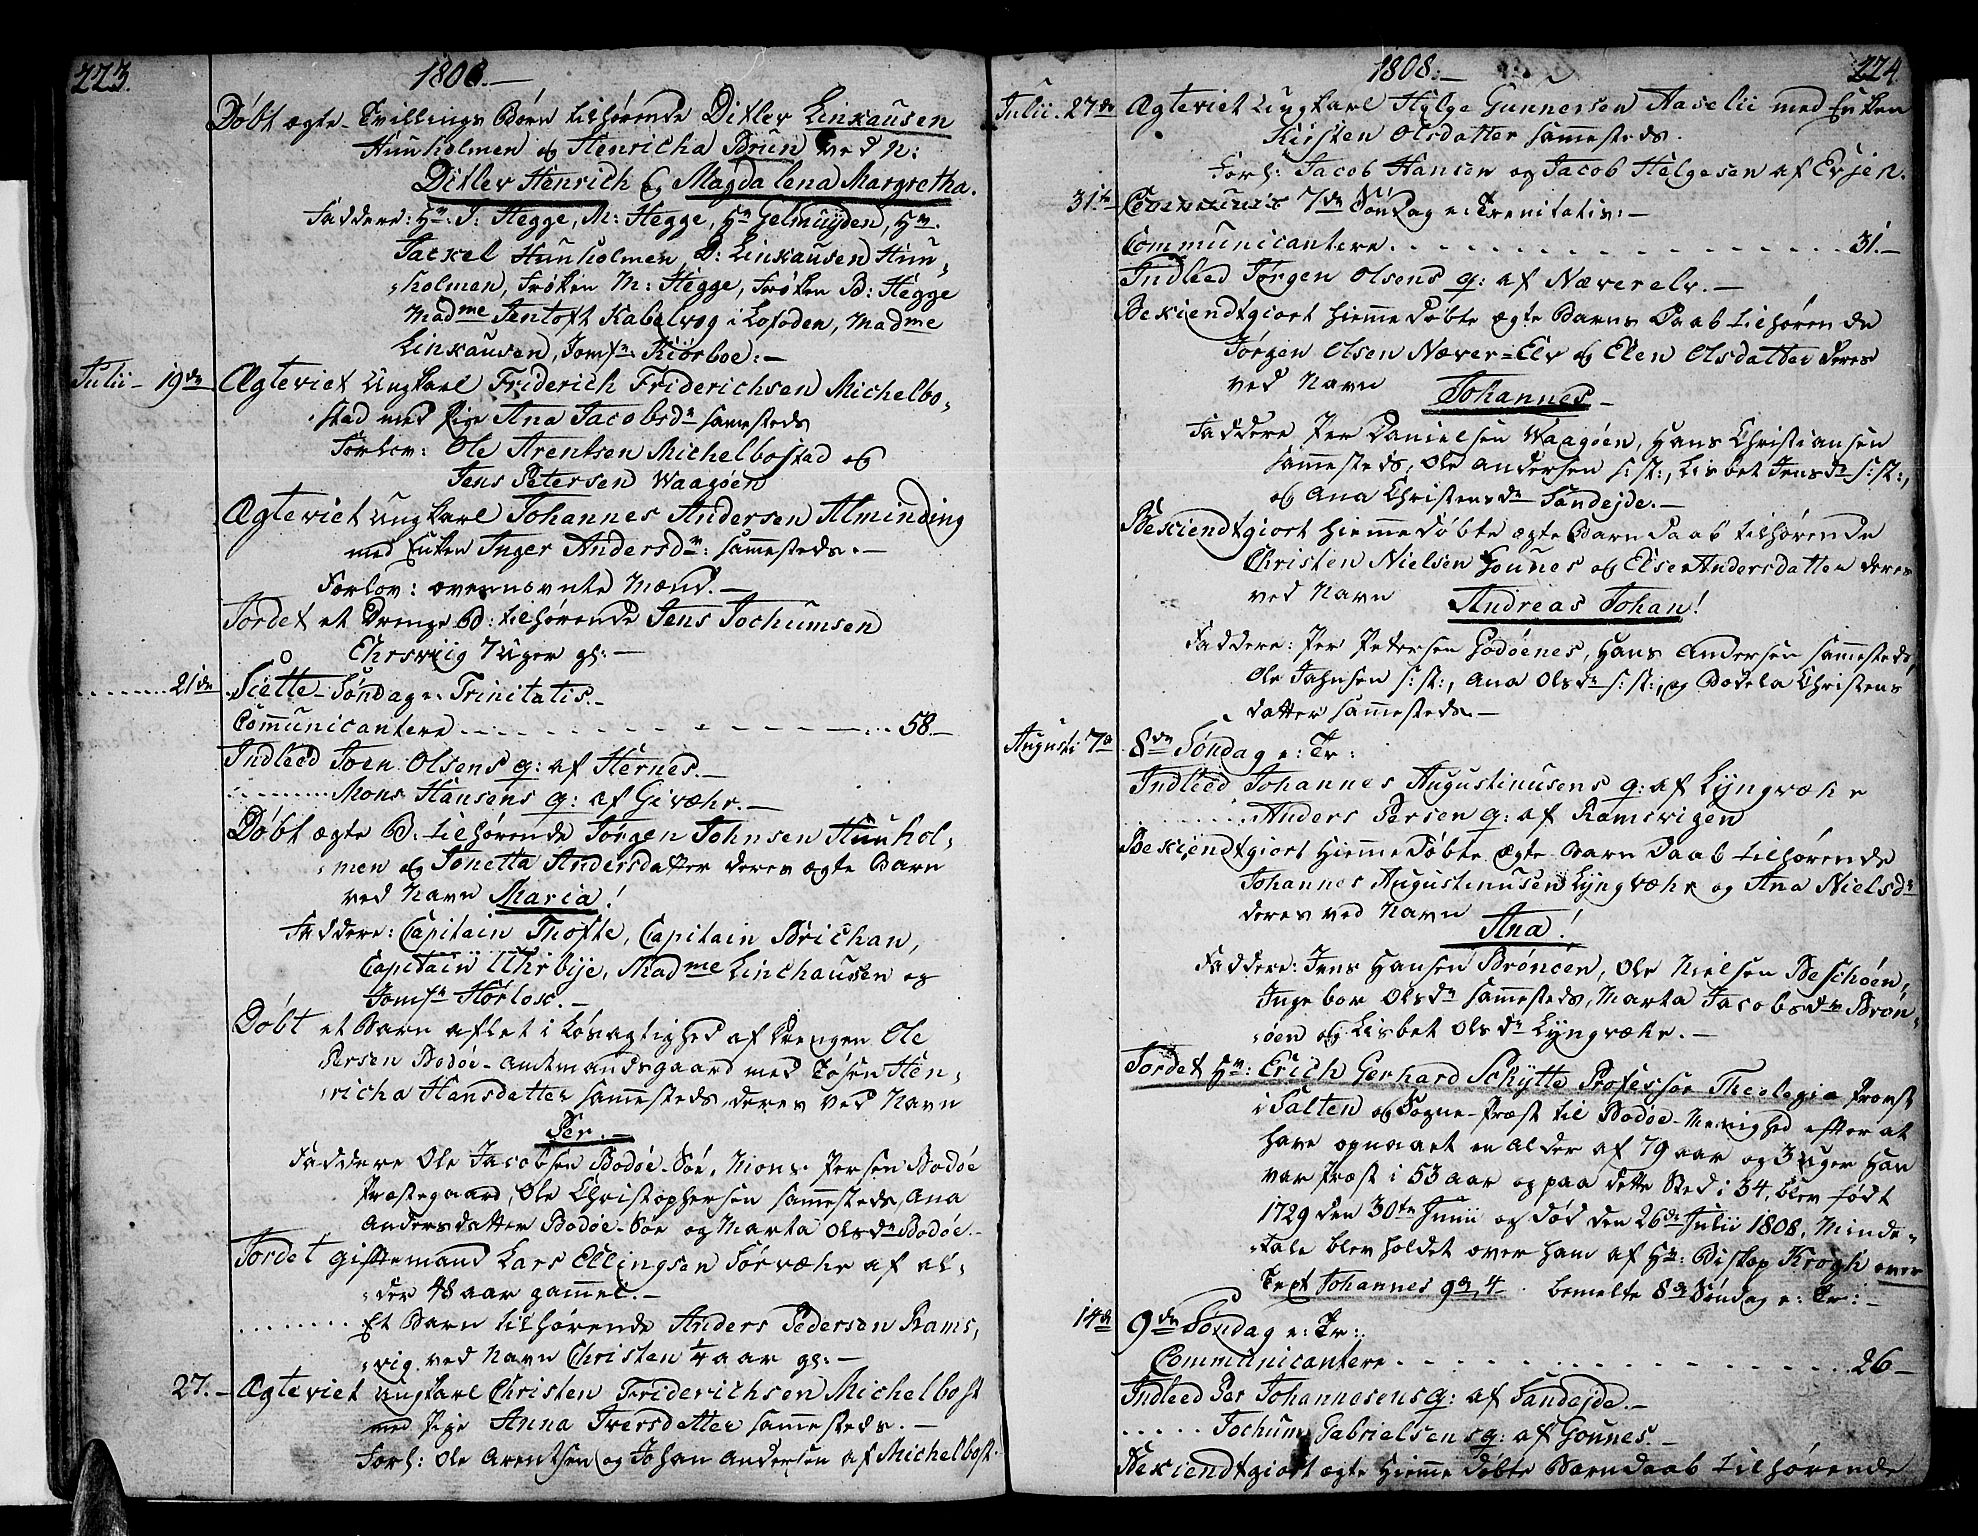 223.
1808.-
Døbt ægte Tvillings Børn tilhørende Ditlev Linkausen
Hunholmen og Henricha Brun ved N:
Ditlev Henrich & Magdalena Margretha.
Faddere: Hr. J: Hegge, M: Hegge, Hr Gelmuyden, Hr.
Jackel Hunholmen, D: Linkausen Hun,
,holmen, Frøken M: Hegge, Frøken B: Hegge
Madme Jentoft Kabelvog i Lofoden, Madme
Linkausen, Jomfr Kiørboe:-
Julii - 19de Ægteviet Ungkarl Friderich Friderichsen Michelbo,
,stad med Pige Ana Jacobsdr sammesteds
Forlov: Ole Arentsen Michelbostad og
Jens Petersen Waagøen
Ægteviet Ungkarl Johannes Andersen Alminding
med Enken Inger Andersdr: sammesteds.-
Forlov: ovennævnte Mænd.-
Jordet et Drenge B: tilhørende Jens Jochumsen
Ehrsviig 7 Uger gl:-
21de Siette Søndag e: Trinitatis.-
Communicantere 58.-
Indleed Joen Olsens q: af Hernes.-
Mons Hansens q: af Givæhr.-
Døbt ægte B: tilhørende Jørgen Johnsen Hunhol,
,men og Jonetta Andersdatter deres ægte Barn
ved Navn Maria!
Faddere: Capitain Thofte, Capitain Brichan,
Capitain Uhrbye, Madme Linchausen og
Jomfr Hørlock.-
Døbt et Barn aflet i Løsagtighed af Drengen Ole
Persen Bodøe-Amtmandsgaard med Tøsen Hen,
,richa Hansdatter sammesteds deres ved Navn
Per.-
Faddere Ole Jacobsen Bodøe-Søe, Mons Persen Bodøe
Præstegaard, Ole Christophersen sammesteds, Ana
Andersdatter Bodøe-Søe og Marta Olsdr Bodøe.-
Jordet giftemand Lars Ellingsen Sørvæhr af al,
,der 48 aar gammel.-
Et Barn tilhørende Anders Pedersen Rams,
,vig ved Navn Christen 1/4 aar gl:-
27.- Ægteviet Ungkarl Christen Friderichsen Michelbost
med Pige Anna Iversdatter sammesteds.-
Forl: Ole Arentsen og Johan Andersen af Michelbost.
1808.- 224
Julii. 27de Ægteviet Ungkarl Hylge Gunnersen Aaselii med Enken
Kirsten Olsdatter sammesteds.
Forl: Jacob Hansen og Jacob Helgesen af Evjen.
31te 7de Søndag e: Trenitatis:-
Communicantere 31.-
Indleed Jørgen Olsens q: af Næverelv.-
Bekiendtgiort Hiemmedøbte ægte Barns Daab tilhørende
Jørgen Olsen Næver=Elv og Elen Olsdatter deres
ved Navn Johannes-
Faddere Per Danielsen Waagøen, Hans Christiansen
sammesteds, Ole Andersen s:st:, Lisbet Jensdr s:st:,
og Ana Christensdr Sandejde.-
Bekiendtgiort Hiemmedøbte ægte Barn Daab tilhørende
Christen Nielsen Gounes og Elsee Andersdatter deres
ved Navn Andreas Johan!
Faddere: Per Petersen Godøenes, Hans Andersen sammesteds,
Ole Jahnsen s:st:, Ana Olsdr s:st:, og Bodela Christens
datter sammesteds.-
Augusti 7de 8de Søndag e: Tr:
Indleed Johannes Augustinusens q: af Lyngvæhr
Anders Persen q: af Ramsvigen
Bekiendtgiort Hiemmedøbte Ægte Barn Daab tilhørende
Johannes Augustinusen Lyngvæhr og Ana Nielsdr
deres ved Navn Ana!
Faddere: Jens Hansen Brøncen, Ole Nielsen Beschøen,
Ingebor Olsdr sammesteds, Marta Jacobsdr Brøn,
,øen og Lisbet Olsdr Lyngvæhr.-
Jordet Hr: Erich Gerhard Schytte Professor Theologia Provst
i Salten og Sogne-Præst til Bodøe-Menighed efter at
have opnaaet en Alder af 79 aar og 3 uger Han
var Præst i 53 aar og paa dette Sted i 34, blev født
1729 den 30te Junii og død den 26de Julii 1808. Minde,
,tale blev holdet over ham af Hr: Biskop Krogh over
Text Johannes 9de, 4 bemelte 8de Søndag e: Tr:-
14de 9de Søndag e: Tr:
Communicantere 26-
Indleed Per Johannesens q: af Sandejde.-
Jochum Gabrielsens q: af Gounes.-
Bekiendtgiort ægte Hiemme døbte Barn daab tilhørende